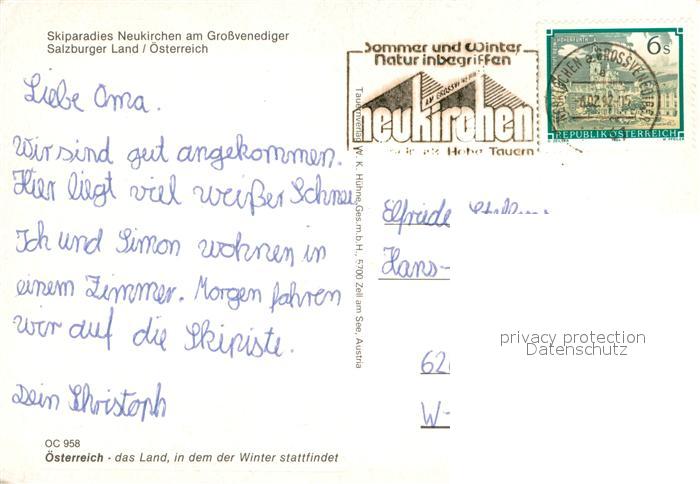 Skiparadies Neukirchen am Großvenediger
Salzburger Land / Österreich
Liebe Oma.
Wir sind gut angekommen.
Hier liegt viel weißer Schnee
Ich und Simon wohnen in
einem Zimmer. Morgen fahren
wir auf die Skipiste.
Dein Christoph
OC 958
Österreich - das Land, in dem der Winter stattfindet
Tauernverlag W. K. Hühne, Ges.m.b.H., 5700 Zell am See, Austria
Sommer und Winter
Natur inbegriffen
AM GROSSVENEDIGER
neukirchen
Hohe Tauern
6 S
REPUBLIK ÖSTERREICH
Elfriede
Hans-
62
W-
privacy protection
Datenschutz